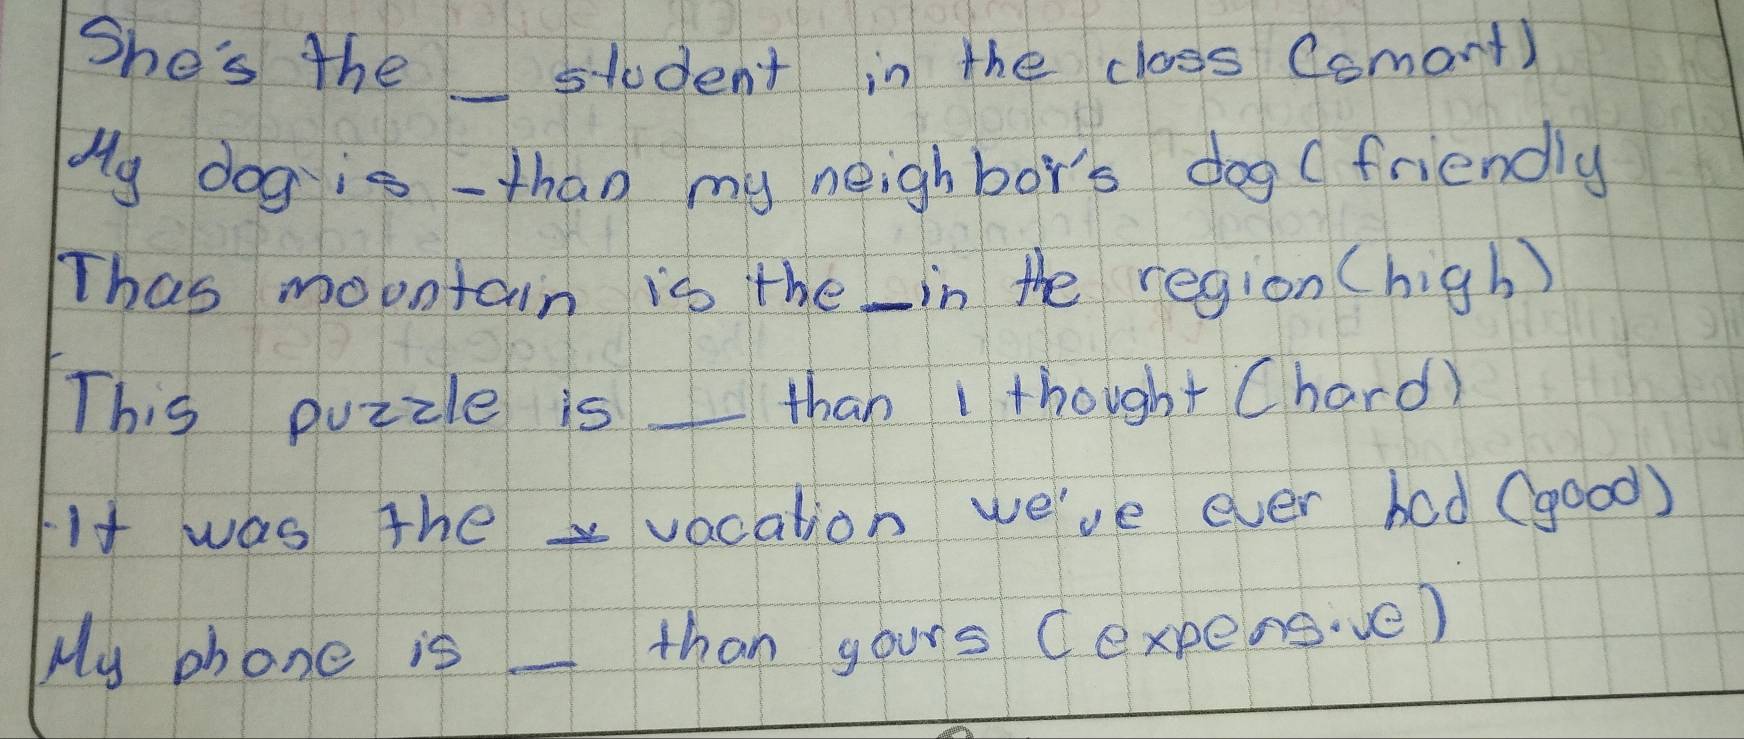 She's the _ student in the class (smart)
My dog is - than my neighbor's dog ( friendly
Thas mountain is the _ in the region (high)
This puzzle is __ than I thought (hard)
It was the _ vacation we've ever had (good)
My phone is __ than yours (expensive)